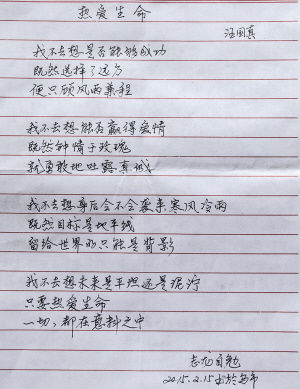 热爱生命
汪国真
我不去想是否能够成功
既然选择了远方
便只顾风雨兼程
我不去想能否赢得爱情
既然钟情于玫瑰
就勇敢地吐露真诚
我不去想身后会不会袭来寒风冷雨
既然目标是地平线
留给世界的只能是背影
我不去想未来是平坦还是泥泞
只要热爱生命
一切，都在意料之中
自勉
2015.2.15